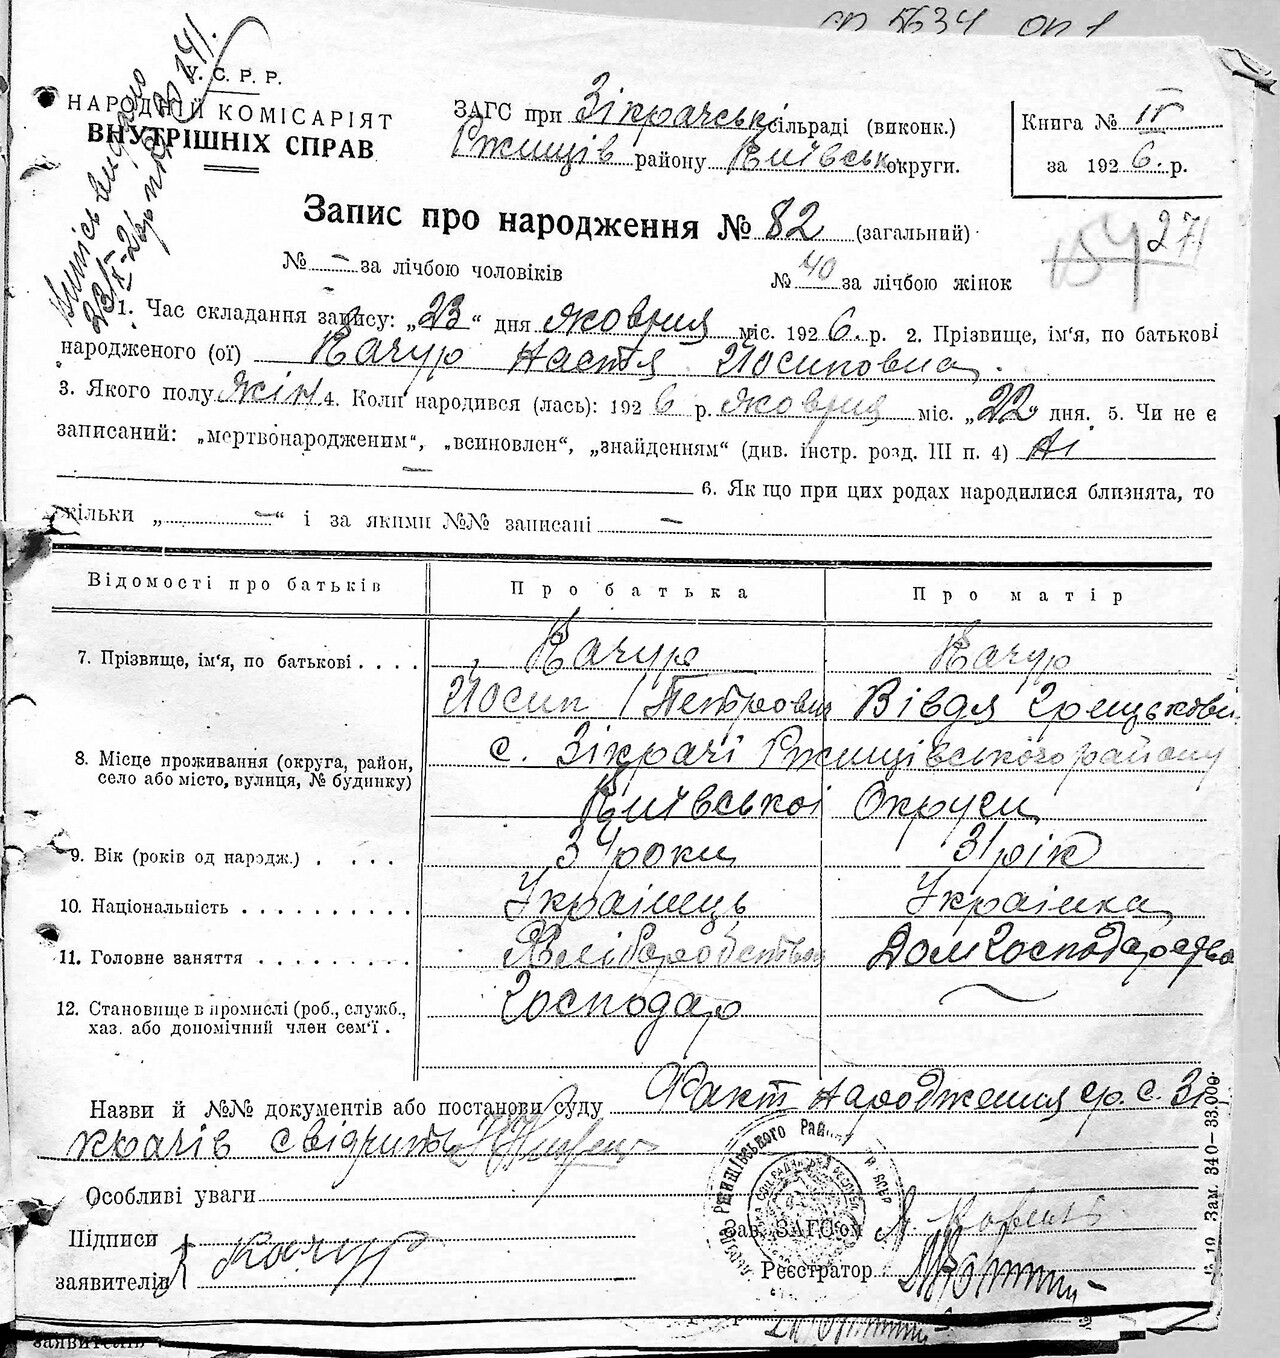 5634 оп 1
У. С. Р. Р.
НАРОДНІЙ КОМІСАРІЯТ
ВНУТРІШНІХ СПРАВ
ЗАГС при Зікрачськ сільраді (виконк.)
Ржищів району Київськ округи.
Книга № II
за 1926 р.
Запис про народження № 82 (загальний)
154 271
№ – за лічбою чоловіків № 40 за лічбою жінок
1. Час складання запису: „23“ дня жовтня міс. 1926 р. 2. Прізвище, ім'я, по батькові
народженого (ої) Качур Настя Йосиповна.
3. Якого полу жін 4. Коли народився (лась): 1926 р. жовтня міс. „22“ дня. 5. Чи не є
записаний: „мертвонародженим“, „всиновлен“, „знайденням“ (див. інстр. розд. III п. 4) Ні
— 6. Якщо при цих родах народилися близнята, то
скільки „ — “ і за якими №№ записані —
Відомості про батьків Про батька Про матір
7. Прізвище, ім'я, по батькові . . . . Качур Качур
Йосип Петрович Вівдя Грицькови
8. Місце проживання (округа, район, село або місто, вулиця, № будинку) с. Зікрачі Ржищівського району
Київської Округи
9. Вік (років од народж.) . . . . 34 роки 31 рік
10. Національність . . . . . . . . . . Українець Українка
11. Головне заняття . . . . . . . . . Хліборобство Дом Господарство
12. Становище в промислі (роб., служб., хаз. або допомічний член сем'ї . Господар
Назви й №№ документів або постанови суду Факт народження гр. с. Зі
крачів свідчить
Особливі уваги
Підписи
заявителів Качур
Зав. ЗАГС'ом
Реєстратор
Зам. 340—33.000
заявителів